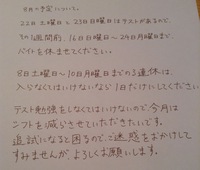 8月の予定について。
22日土曜日と23日日曜日はテストがあるので、
その1週間前、16日日曜日〜24日月曜日まで、
バイトを休ませてください。
8日土曜日〜10日月曜日までの3連休は、
入らなくてはいけないなら1日だけにしてください。
テスト勉強をしなくてはいけないので、今月は
シフトを減らさせていただきたいです。
追試になると困るので、ご迷惑をおかけして
すみませんが、よろしくお願いします。